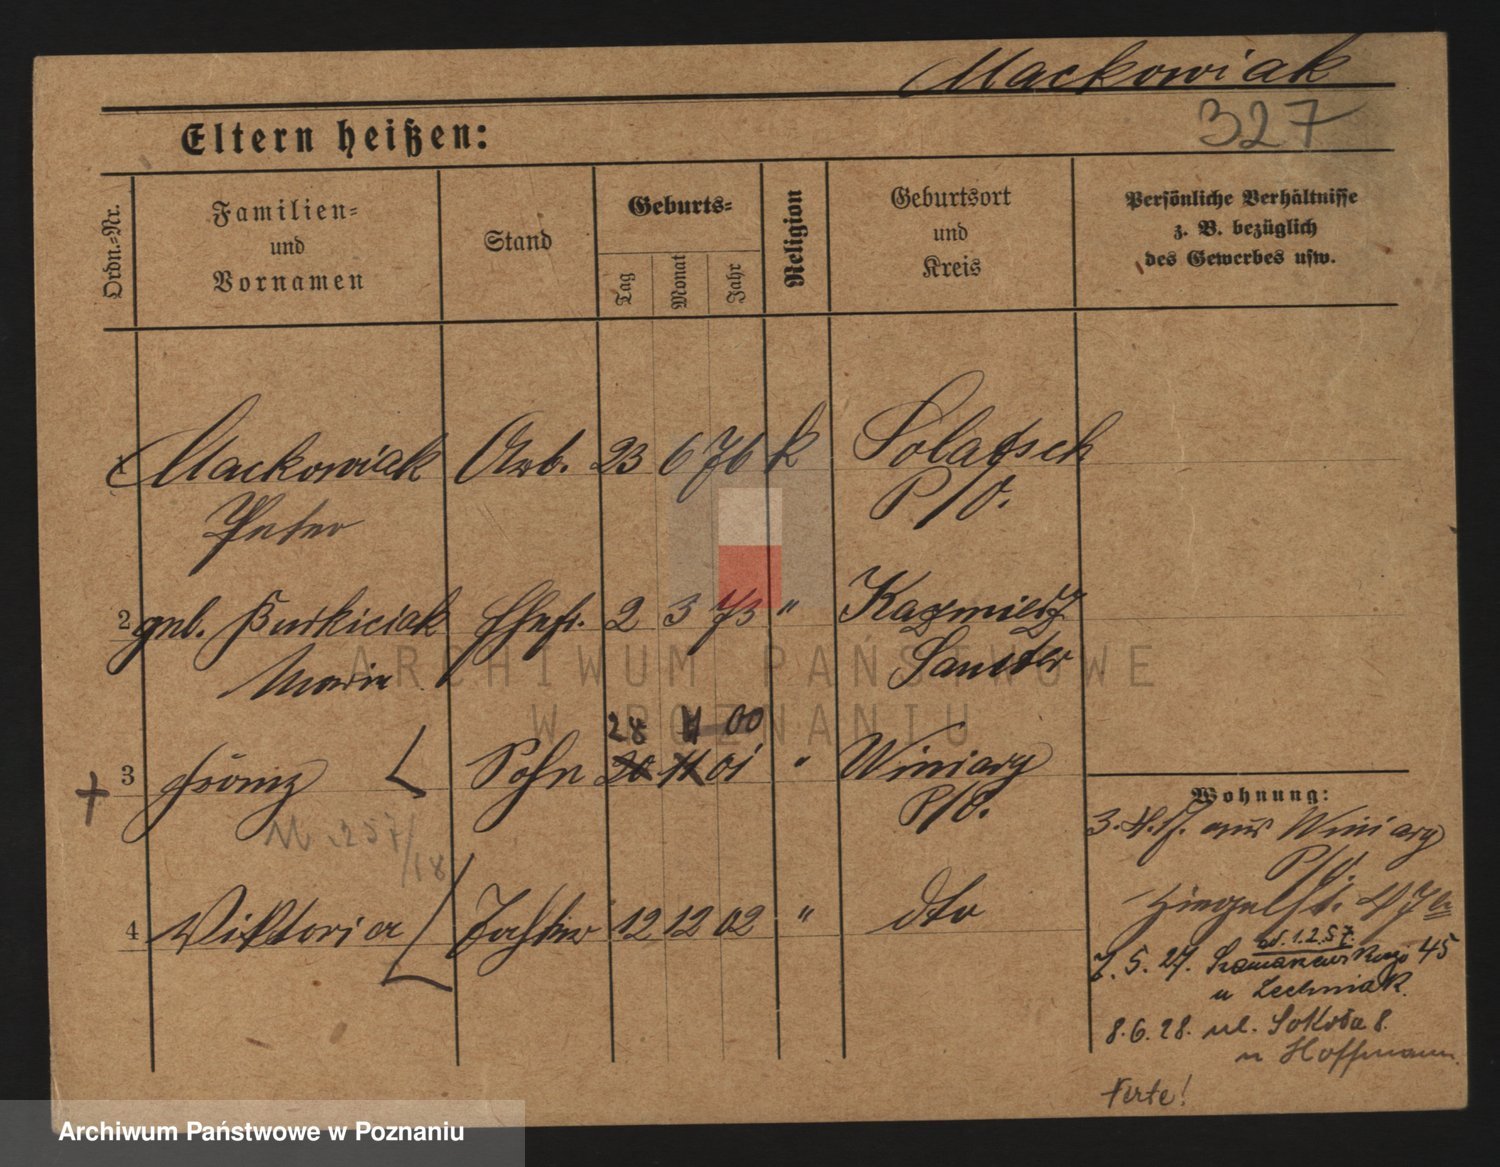 Mackowiak
327
Eltern heißen:
Ordn.=Nr.
Familien=
und
Vornamen
Stand
Geburts=
Tag
Monat
Jahr
Religion
Geburtsort
und
Kreis
Persönliche Verhältnisse
z. B. bezüglich
des Gewerbes usw.
1 Mackowiak Arb. 23 6 76 k Solatsch
Peter P/O.
2 geb. Ehefr. 2 3 73 " Kazmierz
Maria Samter
28 11 00
+ 3 Franz Sohn 20 11 01 " Winiary
P/O.
N. 257/18
4 Viktoria Tochter 12 12 02 " dto
Wohnung:
3. 4. 17. aus Winiary
P/O.
Ziegelstr. 47b
od. 1.2.57.
7. 5. 27. 45
u Lechniak.
8. 6. 28. ul. Sokoła 8.
u Hoffmann.
verte!
ARCHIWUM PAŃSTWOWE
W POZNANIU
Archiwum Państwowe w Poznaniu